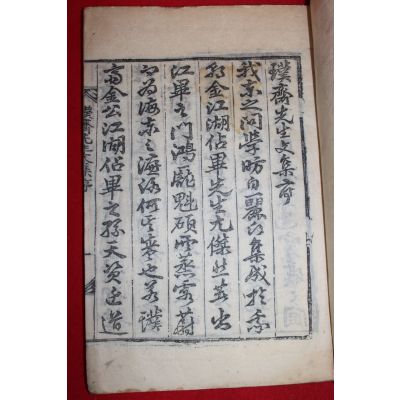 璞齋先生文集序
我東之問學昉自麗氏集成於
朝金江湖佔畢先生尤傑然並出
江畢之門鴻厖魁碩雲蒸霧蔚
為海東之濂洛何其盛也若璞
齋金公江湖佔畢之孫天資近道
璞齋先生文集序